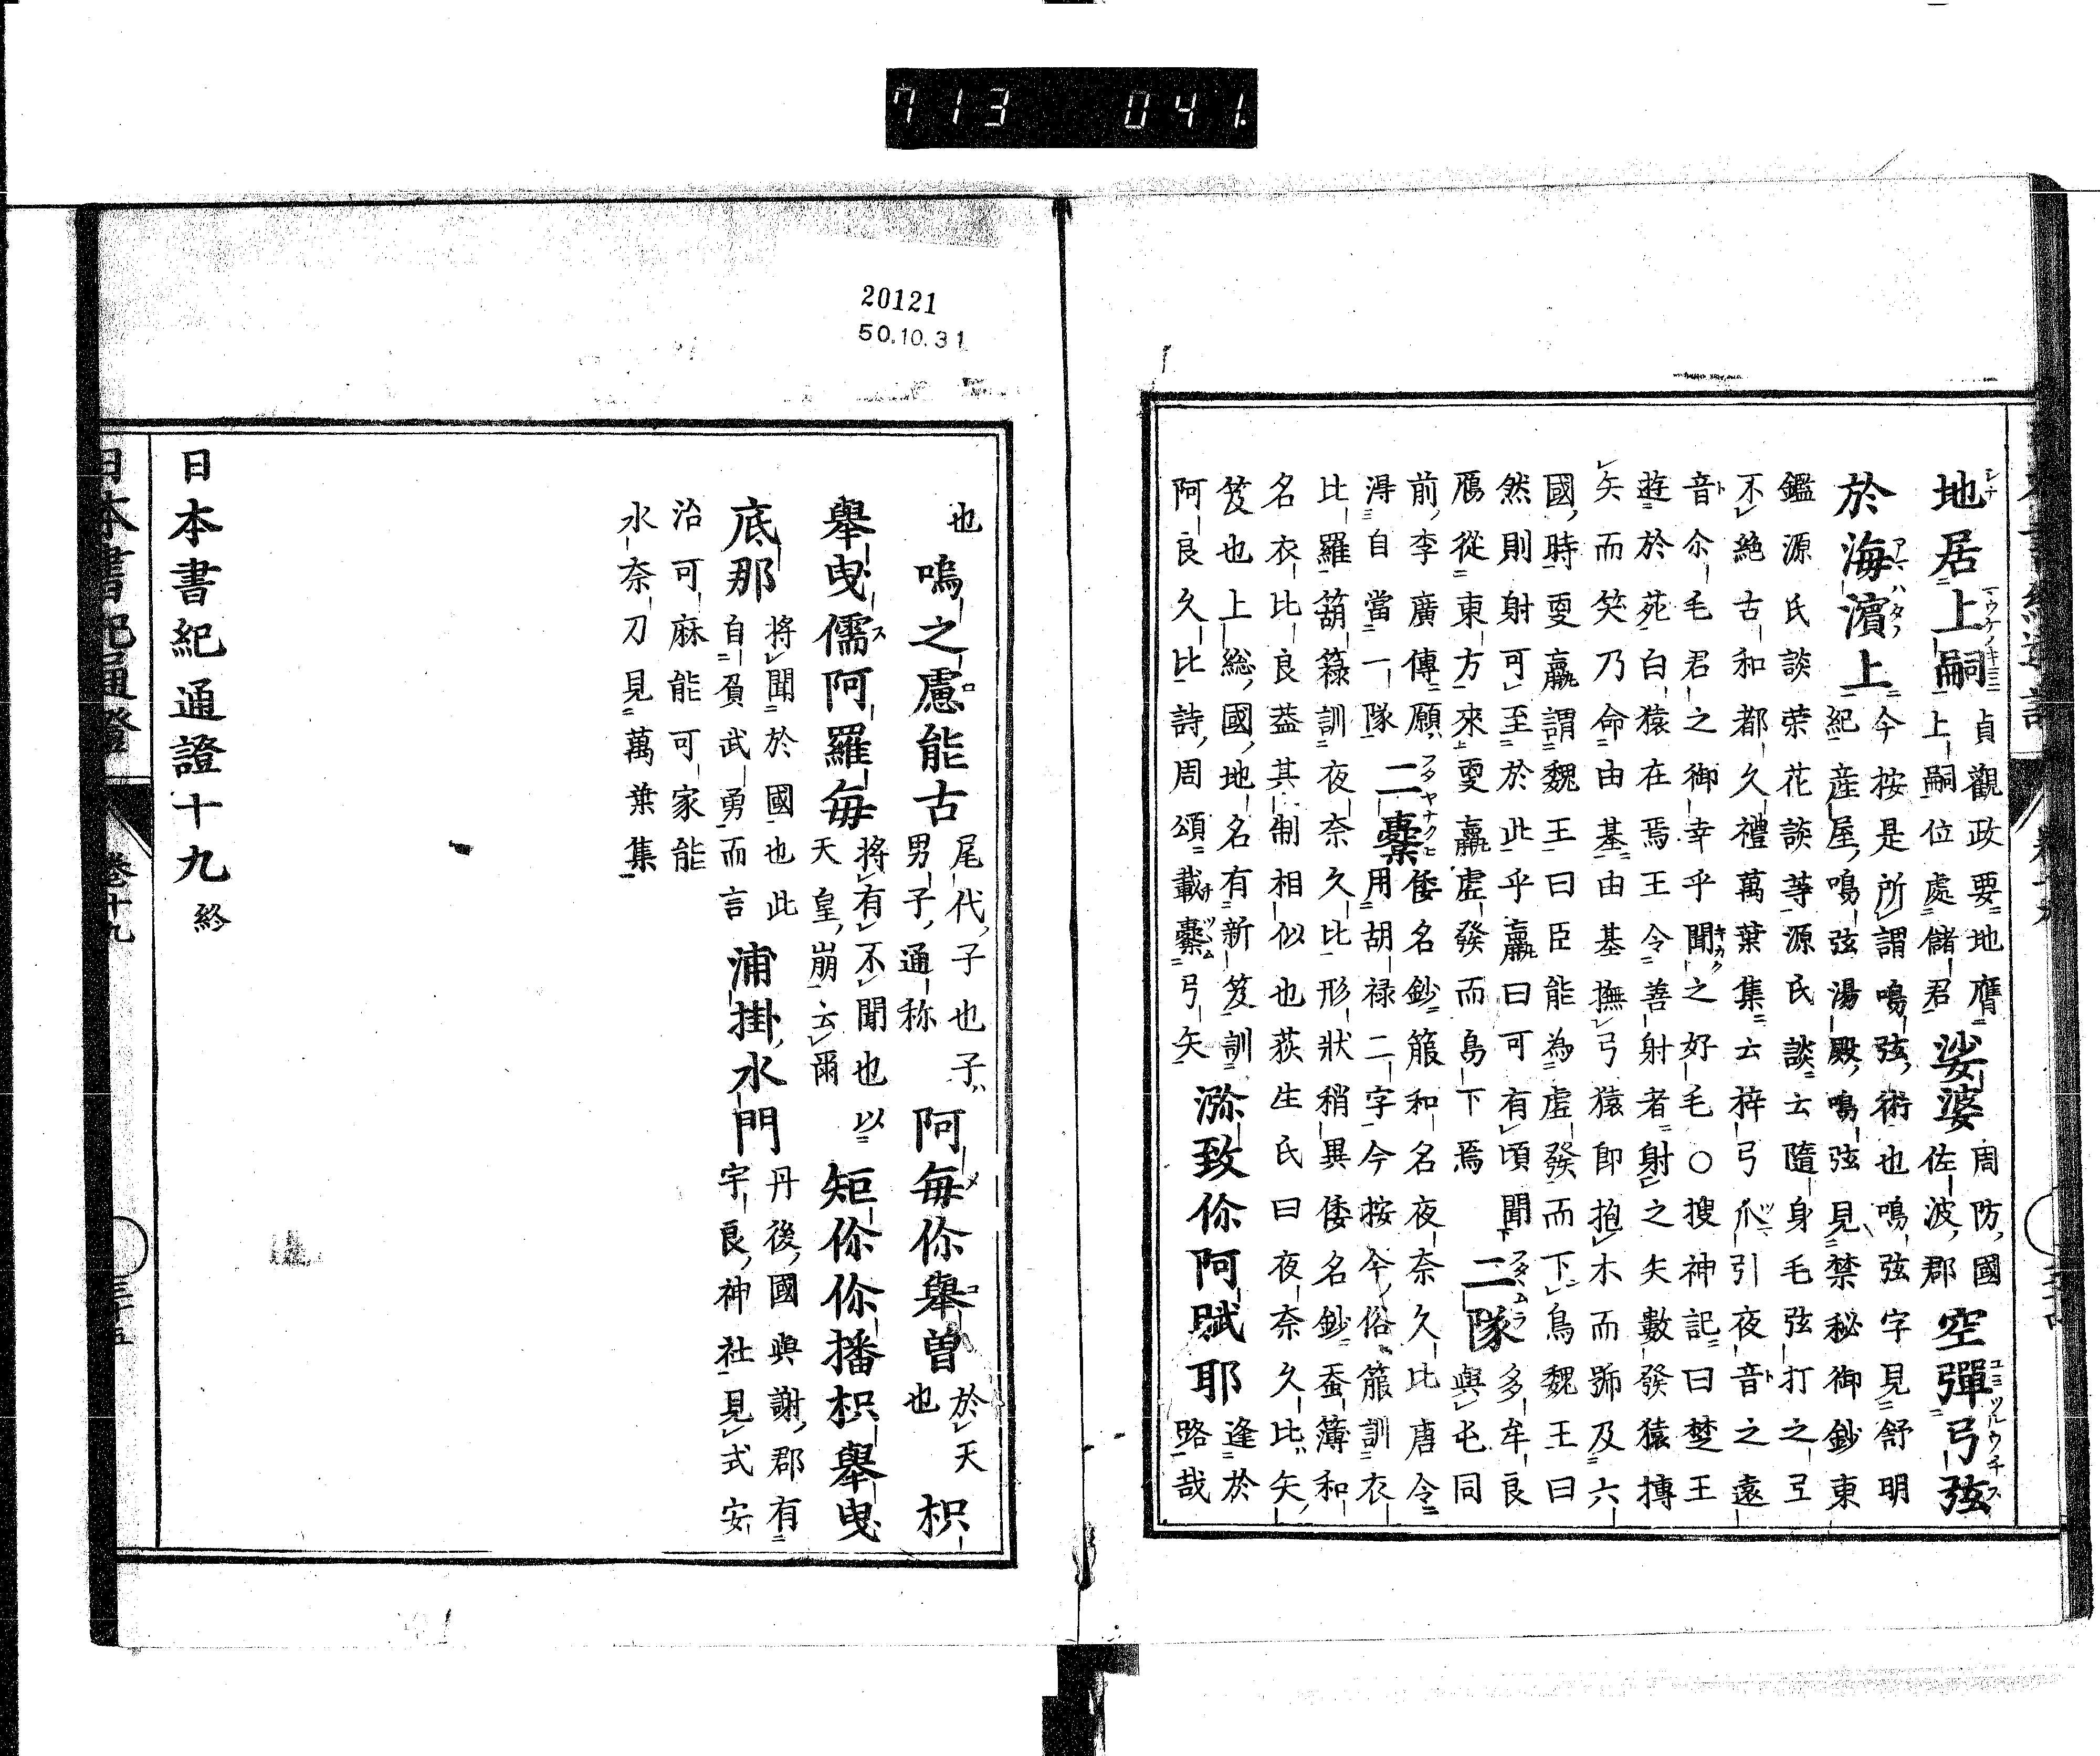 地居上嗣
貞觀政要地膺
上嗣位處儲君
娑婆
周防國
佐波郡
空彈弓弦
於海濵上
今按是所謂鳴弦術也鳴弦字見舒明
紀産屋鳴弦湯殿鳴弦見禁秘御鈔東
鑑源氏談荣花談等源氏談云隨身毛弦打之弖
不絶古和都久禮萬葉集云梓弓爪引夜音之遠
音尒毛君之御幸乎聞之好毛○搜神記曰楚王
遊於苑白猿在焉王令善射者射之矢數發猿摶
矢而笑乃命由基由基撫弓猿即抱木而號及六
國時更羸謂魏王曰臣能為虚發而下鳥魏王曰
然則射可至於此乎羸曰可有頃聞
鴈從東方來更羸虚發而鳥下焉
二隊
多牟良
與屯同
前李廣傳願
淂自當一隊
二櫜
倭名鈔箙和名夜奈久比唐令
用胡禄二字今按今俗箙訓衣
比羅葫籙訓夜奈久比形狀稍異倭名鈔蚕簿和
名衣比良葢其制相似也荻生氏曰夜奈久比矢
笈也上総國地名有新笈訓
阿良久比詩周頌載櫜弓矢
㳽致伱阿賦耶
逢於
路哉
也
嗚之慮能古
尾代子也子
男子通称
阿毎伱舉曽
於天
也
枳
舉曳儒阿羅毎
將有不聞也以
天皇崩云爾
矩伱伱播枳舉曳
底那
將聞於國也此
自負武勇而言
浦掛水門
丹後國與謝郡有
宇良神社見式安
治可麻能可家能
水奈刀見萬葉集
日本書紀通證十九終
日本書紀通證 卷十九 三十五
20121
50.10.31
713 041.